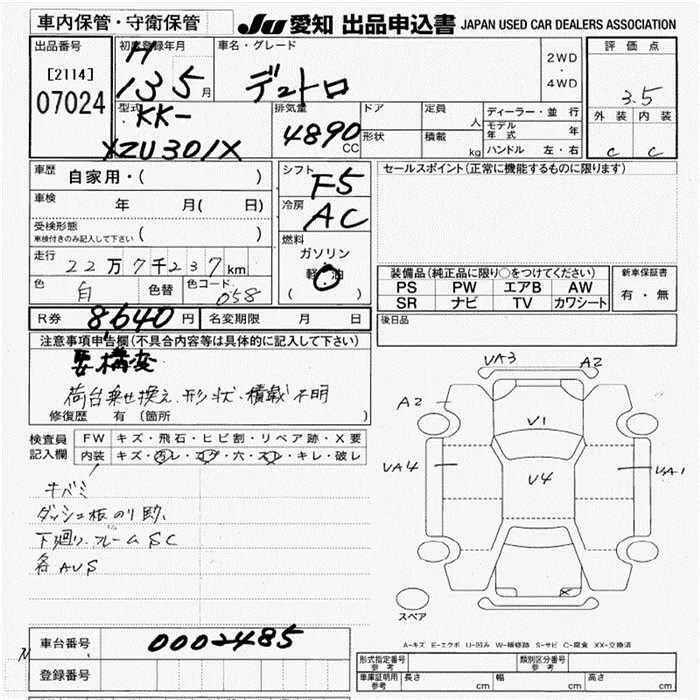 車内保管・守衛保管
JU 愛知 出品申込書 JAPAN USED CAR DEALERS ASSOCIATION
出品番号
[2114]
07024
初度登録年月
H
13 5 月
車名・グレード
デュトロ
2WD
・
4WD
評価点
3.5
外装 内装
C C
型式
KK-
XZU301X
排気量
4890
CC
ドア
形状
定員
人
積載
kg
ディーラー・並行
モデル年式 年
ハンドル 左・右
車歴
自家用・( )
車検
年 月( 日)
受検形態
車検付きのみ記入して下さい ( )
走行
22万7千237km
色 白 色替 色コード 058
シフト
F5
冷房
AC
燃料
ガソリン
軽油
( )
セールスポイント(正常に機能するものに限ります)
装備品(純正品に限り○をつけてください)
PS PW エアB AW
SR ナビ TV カワシート
新車保証書
有・無
後日品
R券 8,640円 名変期限 月 日
注意事項申告欄(不具合内容等は具体的に記入して下さい)
要構変
荷台乗せ換え、形状、積載不明
修復歴 有 (箇所 )
検査員
記入欄
FW キズ・飛石・ヒビ割・リペア跡・X要
内装 キズ・汚レ・コゲ・穴・スレ・キレ・破レ
キバミ
ダッシュ板のり跡、
下廻り、フレームSC
各AUS
VA3 A2
A2
V1
VA4 V4 VA1
X
スペア
車台番号 0002485
登録番号
A-キズ E-エクボ U-凹み W-補修跡 S-サビ C-腐食 XX-交換済
形式指定番号
参考
類別区分番号
参考
車庫証明用
参考
長さ cm 幅 cm 高さ cm